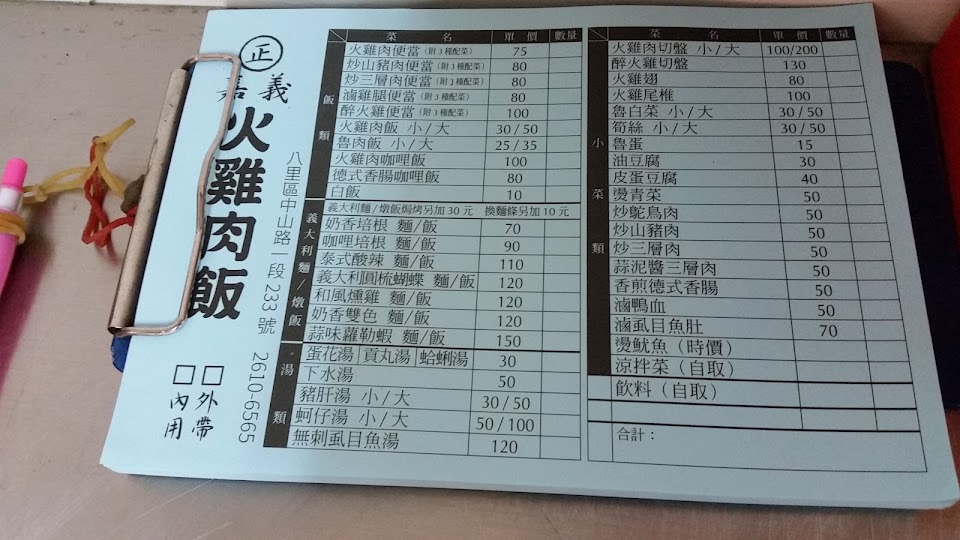 正
嘉義
火雞肉飯
八里區中山路一段233號 2610-6565
□內用 □外帶
菜名 單價 數量
飯類
火雞肉便當(附3種配菜) 75
炒山豬肉便當(附3種配菜) 80
炒三層肉便當(附3種配菜) 80
滷雞腿便當(附3種配菜) 80
醉火雞便當(附3種配菜) 100
火雞肉飯 小/大 30/50
魯肉飯 小/大 25/35
火雞肉咖哩飯 100
德式香腸咖哩飯 80
白飯 10
義大利麵/燉飯
義大利麵/燉飯焗烤另加30元 換麵條另加10元
奶香培根 麵/飯 70
咖哩培根 麵/飯 90
泰式酸辣 麵/飯 110
義大利圓梳蝴蝶 麵/飯 120
和風燻雞 麵/飯 120
奶香雙色 麵/飯 120
蒜味蘿勒蝦 麵/飯 150
湯類
蛋花湯|貢丸湯|蛤蜊湯 30
下水湯 50
豬肝湯 小/大 30/50
蚵仔湯 小/大 50/100
無刺虱目魚湯 120
菜名 單價 數量
小菜類
火雞肉切盤 小/大 100/200
醉火雞切盤 130
火雞翅 80
火雞尾椎 100
魯白菜 小/大 30/50
筍絲 小/大 30/50
魯蛋 15
油豆腐 30
皮蛋豆腐 40
燙青菜 50
炒鴕鳥肉 50
炒山豬肉 50
炒三層肉 50
蒜泥醬三層肉 50
香煎德式香腸 50
滷鴨血 50
滷虱目魚肚 70
燙魷魚(時價)
涼拌菜(自取)
飲料(自取)
合計: